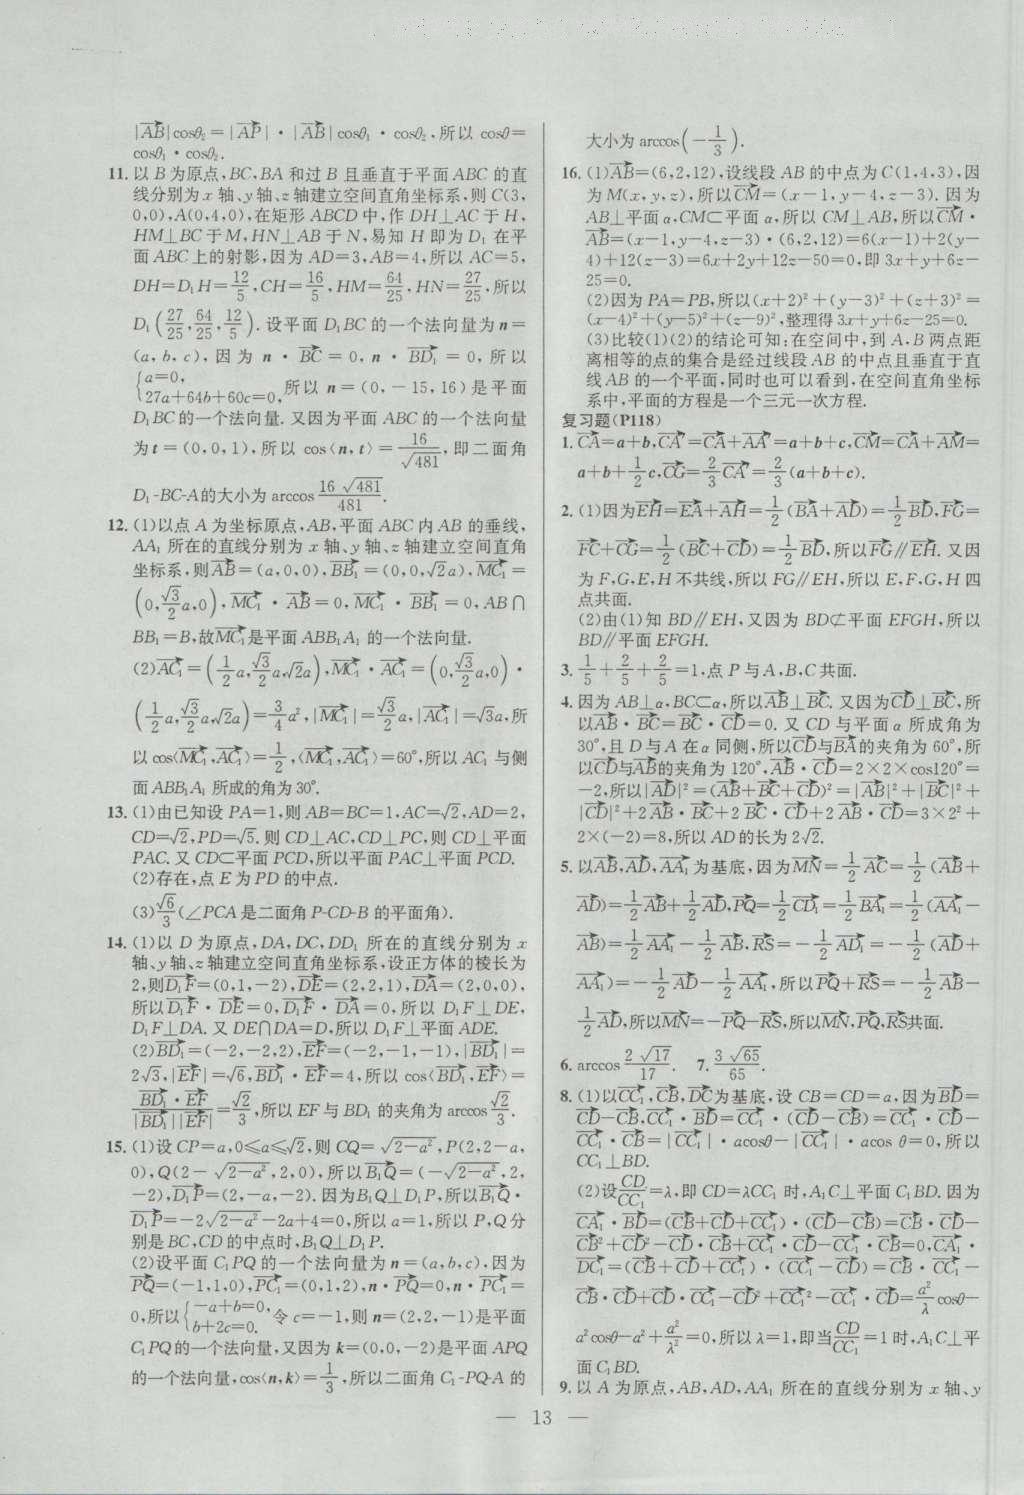 |AB|cosθ₂=|AP|·|AB|cosθ₁·cosθ₂,所以 cosθ=
cosθ₁·cosθ₂.
11. 以 B 为原点,BC,BA 和过 B 且垂直于平面 ABC 的直
线分别为 x 轴、y 轴、z 轴建立空间直角坐标系,则 C(3,
0,0),A(0,4,0),在矩形 ABCD 中,作 DH⊥AC 于 H,
HM⊥BC 于 M,HN⊥AB 于 N,易知 H 即为 D₁ 在平
面 ABC 上的射影,因为 AD=3,AB=4,所以 AC=5,
DH=D₁H=12/5,CH=16/5,HM=64/25,HN=27/25,所以
D₁(27/25,64/25,12/5).设平面 D₁BC 的一个法向量为 n=
(a,b,c),因为 n·BC=0,n·BD₁=0,所以
{a=0,
27a+64b+60c=0,所以 n=(0,-15,16)是平面
D₁BC 的一个法向量.又因为平面 ABC 的一个法向量
为 t=(0,0,1),所以 cos⟨n,t⟩=16/√481,即二面角
D₁-BC-A 的大小为 arccos 16√481/481.
12. (1)以点 A 为坐标原点,AB,平面 ABC 内 AB 的垂线,
AA₁ 所在的直线分别为 x 轴、y 轴、z 轴建立空间直角
坐标系,则AB=(a,0,0),BB₁=(0,0,√2a),MC₁=
(0,√3/2a,0),MC₁·AB=0,MC₁·BB₁=0,AB∩
BB₁=B,故MC₁是平面 ABB₁A₁ 的一个法向量.
(2)AC₁=(1/2a,√3/2a,√2a),MC₁·AC₁=(0,√3/2a,0)·
(1/2a,√3/2a,√2a)=3/4a²,|MC₁|=√3/2a,|AC₁|=√3a,所
以 cos⟨MC₁,AC₁⟩=1/2,⟨MC₁,AC₁⟩=60°,所以 AC₁ 与侧
面 ABB₁A₁ 所成的角为 30°.
13. (1)由已知设 PA=1,则 AB=BC=1,AC=√2,AD=2,
CD=√2,PD=√5.则 CD⊥AC,CD⊥PC,则 CD⊥平面
PAC.又 CD⊂平面 PCD,所以平面 PAC⊥平面 PCD.
(2)存在,点 E 为 PD 的中点.
(3)√6/3(∠PCA 是二面角 P-CD-B 的平面角).
14. (1)以 D 为原点,DA,DC,DD₁ 所在的直线分别为 x
轴、y 轴、z 轴建立空间直角坐标系,设正方体的棱长为
2,则D₁F=(0,1,-2),DE=(2,2,1),DA=(2,0,0),
所以D₁F·DE=0,D₁F·DA=0,所以 D₁F⊥DE,
D₁F⊥DA.又 DE∩DA=D,所以 D₁F⊥平面 ADE.
(2)BD₁=(-2,-2,2),EF=(-2,-1,-1),|BD₁|=
2√3,|EF|=√6,BD₁·EF=4,所以 cos⟨BD₁,EF⟩=
BD₁·EF/|BD₁||EF|=√2/3,所以 EF 与 BD₁ 的夹角为 arccos √2/3.
15. (1)设 CP=a,0≤a≤√2,则 CQ=√2-a²,P(2,2-a,
0),Q(2-√2-a²,2,0),所以B₁Q=(-√2-a²,2,
-2),D₁P=(2,-a,-2).因为B₁Q⊥D₁P,所以B₁Q·
D₁P=-2√2-a²-2a+4=0,所以 a=1,所以 P,Q 分
别是 BC,CD 的中点时,B₁Q⊥D₁P.
(2)设平面 C₁PQ 的一个法向量为 n=(a,b,c),因为
PQ=(-1,1,0),PC₁=(0,1,2),n·PQ=0,n·PC₁=
0,所以{-a+b=0,
b+2c=0.令 c=-1,则 n=(2,2,-1)是平面
C₁PQ 的一个法向量,又因为 k=(0,0,-2)是平面 APQ
的一个法向量,cos⟨n,k⟩=1/3,所以二面角 C₁-PQ-A 的
大小为 arccos(-1/3).
16. (1)AB=(6,2,12),设线段 AB 的中点为 C(1,4,3),因
为 M(x,y,z),所以CM=(x-1,y-4,z-3).因为
AB⊥平面 α,CM⊂平面 α,所以 CM⊥AB,所以CM·
AB=(x-1,y-4,z-3)·(6,2,12)=6(x-1)+2(y-
4)+12(z-3)=6x+2y+12z-50=0,即 3x+y+6z-
25=0.
(2)因为 PA=PB,所以(x+2)²+(y-3)²+(z+3)²=
(x-4)²+(y-5)²+(z-9)²,整理得 3x+y+6z-25=0.
(3)比较(1)(2)的结论可知:在空间中,到 A,B 两点距
离相等的点的集合是经过线段 AB 的中点且垂直于直
线 AB 的一个平面,同时也可以看到,在空间直角坐标
系中,平面的方程是一个三元一次方程.
复习题(P118)
1. CA=a+b,CA′=CA+AA′=a+b+c,CM=CA+AM=
a+b+1/2c,CG=2/3CA′=2/3(a+b+c).
2. (1)因为EH=EA+AH=1/2(BA+AD)=1/2BD,FG=
FC+CG=1/2(BC+CD)=1/2BD,所以FG∥EH.又因
为 F,G,E,H 不共线,所以 FG∥EH,所以 E,F,G,H 四
点共面.
(2)由(1)知 BD∥EH,又因为 BD⊄平面 EFGH,所以
BD∥平面 EFGH.
3. 1/5+2/5+2/5=1,点 P 与 A,B,C 共面.
4. 因为 AB⊥α,BC⊂α,所以AB⊥BC.又因为CD⊥BC,所
以AB·BC=BC·CD=0.又 CD 与平面 α 所成角为
30°,且 D 与 A 在 α 同侧,所以CD与BA的夹角为 60°,所
以CD与AB的夹角为 120°,AB·CD=2×2×cos120°=
-2,所以|AD|²=(AB+BC+CD)²=|AB|²+|BC|²+
|CD|²+2AB·BC+2BC·CD+2AB·CD=3×2²+
2×(-2)=8,所以 AD 的长为 2√2.
5. 以AB,AD,AA₁为基底,因为MN=1/2AC=1/2(AB+
AD)=1/2AB+1/2AD,PQ=1/2CD₁=1/2BA₁=1/2(AA₁-
AB)=1/2AA₁-1/2AB,RS=-1/2AD₁=-1/2(AD+
AA₁)=-1/2AD-1/2AA₁,所以PQ+RS=-1/2AB-
1/2AD,所以MN=-PQ-RS,所以MN,PQ,RS共面.
6. arccos 2√17/17. 7. 3√65/65.
8. (1)以CC₁,CB,DC为基底,设 CB=CD=a,因为BD=
CD-CB,CC₁·BD=CC₁·(CD-CB)=CC₁·CD-
CC₁·CB=|CC₁|·acosθ-|CC₁|·acos θ=0,所以
CC₁⊥BD.
(2)设CD/CC₁=λ,即 CD=λCC₁ 时,A₁C⊥平面 C₁BD.因为
CA₁·BD=(CB+CD+CC₁)·(CD-CB)=CB·CD-
CB²+CD²-CD·CB+CC₁·CD-CC₁·CB=0,CA₁·
DC₁=(CB+CD+CC₁)·(CC₁-CD)=CB·CC₁-
CB·CD+CD·CC₁-CD²+CC₁²-CC₁·CD=a²/λcosθ-
a²cosθ-a²+a²/λ²=0,所以 λ=1,即当CD/CC₁=1 时,A₁C⊥平
面 C₁BD.
9. 以 A 为原点,AB,AD,AA₁ 所在的直线分别为 x 轴、y
— 13 —